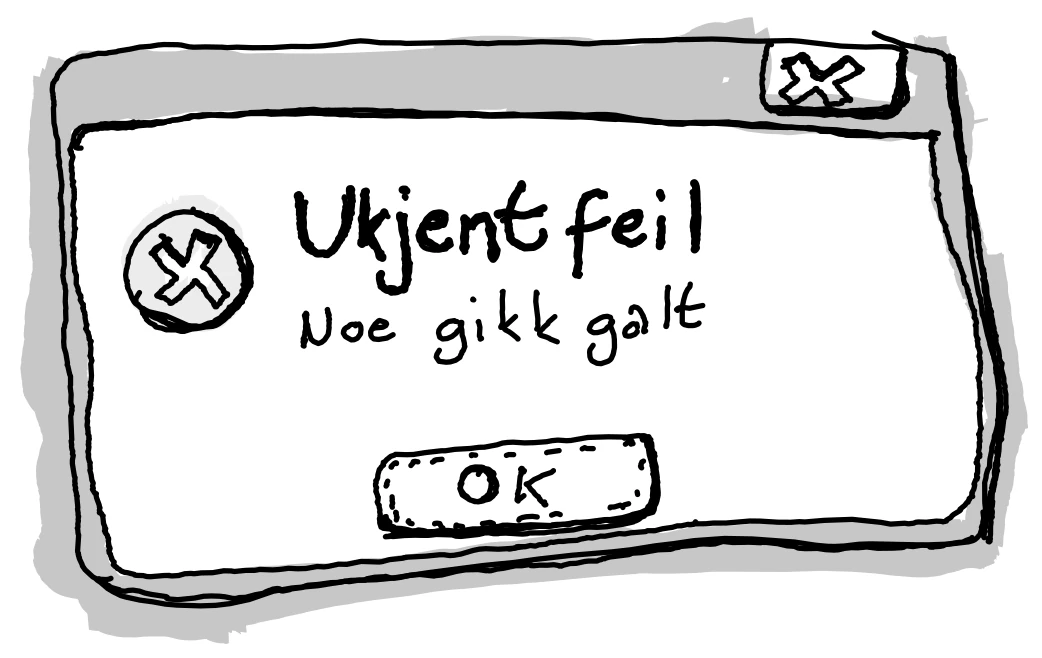 Ukjent feil
Noe gikk galt
OK